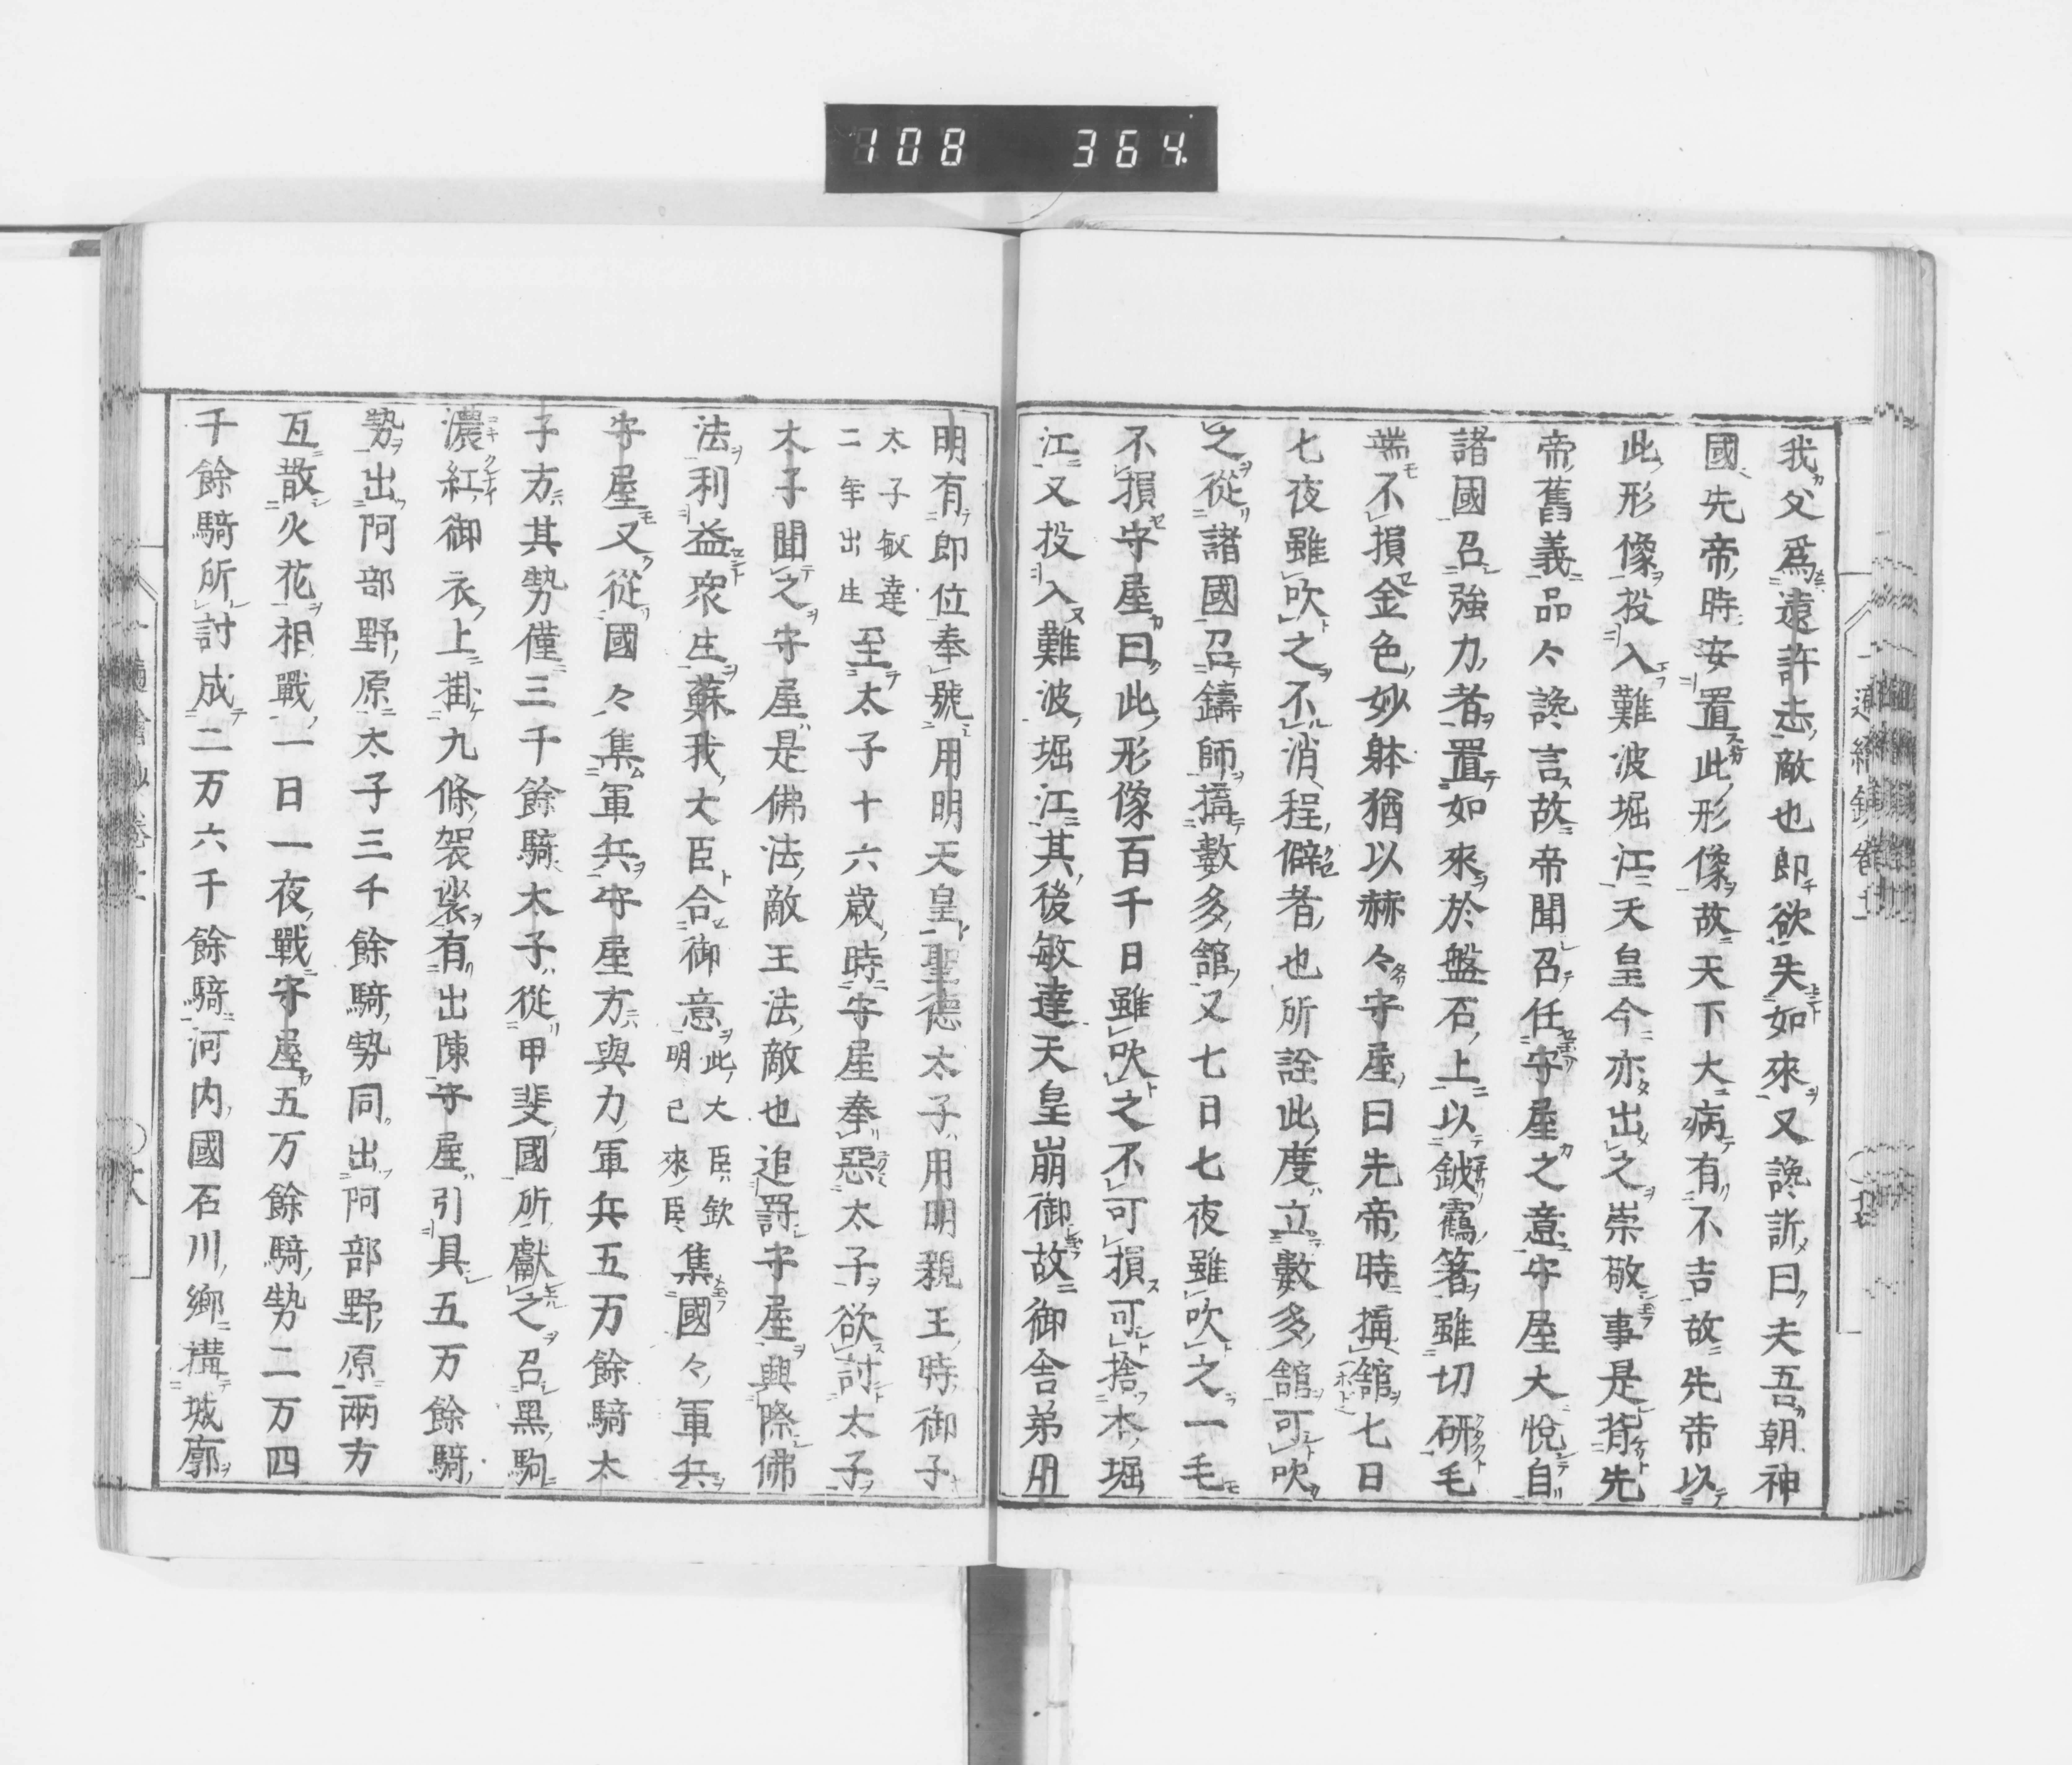 108 364
我父為遠許志敵也即欲失如來又讒訴曰夫吾朝神
國先帝時安置此形像故天下大病有不吉故先帝以
此形像投入難波堀江天皇今亦出之崇敬事是背先
帝舊義品々讒言故帝聞召任守屋之意守屋大悅自
諸國召強力者置如來於盤石上以鉞雖切研毛
端不損金色妙躰猶以赫々守屋曰先帝時搆舘七日
七夜雖吹之不消程僻者也所詮此度立數多舘可吹
之從諸國召鑄師搆數多舘又七日七夜雖吹之一毛
不損守屋曰此形像百千日雖吹之不可損可捨本堀
江又投入難波堀江其後敏達天皇崩御故御舍弟用
明有即位奉號用明天皇聖德太子用明親王時御子
太子敏達
二年出生
至太子十六歲時守屋奉惡太子欲討太子
太子聞之守屋是佛法敵王法敵也追罸守屋興隆佛
法利益衆生蘇我大臣合御意
此大臣欽
明已來臣
集國々軍兵
守屋又從國々集軍兵守屋方與力軍兵五万餘騎太
子方其勢僅三千餘騎太子從甲斐國所獻之召黑駒
濃紅御衣上掛九條袈裟有出陳守屋引具五万餘騎
勢出阿部野原太子三千餘騎勢同出阿部野原兩方
互散火花相戰一日一夜戰守屋五万餘騎勢二万四
千餘騎所討成二万六千餘騎河内國石川鄉搆城廓